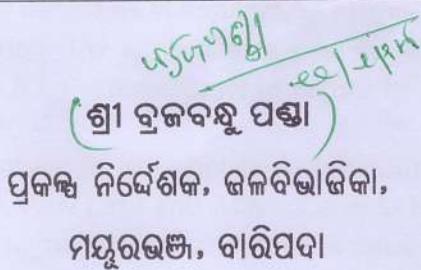 (ଶ୍ରୀ ବ୍ରଜବନ୍ଧୁ ପଣ୍ଡା)
ପ୍ରକଳ୍ପ ନିର୍ଦ୍ଦେଶକ, ଜଳବିଭାଜିକା,
ମୟୂରଭଞ୍ଜ, ବାରିପଦା